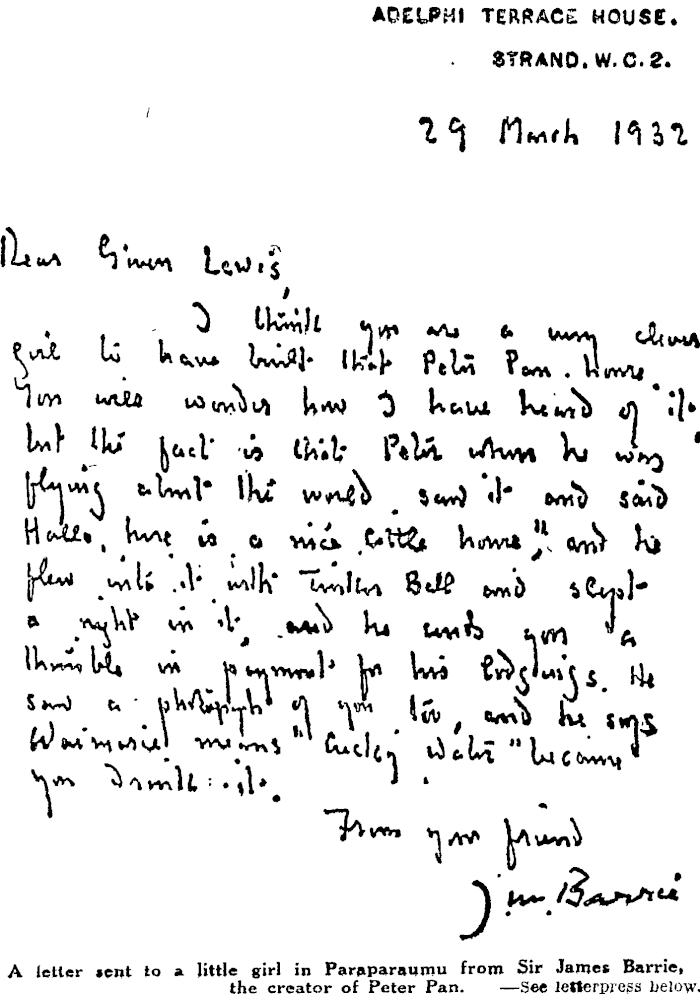 ADELPHI TERRACE HOUSE.
STRAND. W.C.2.
29 March 1932
Dear Gwen Lewis,
I think you are a very clever
girl to have built that Peter Pan house.
You will wonder how I have heard of it.
but the fact is that Peter when he was
flying about the world saw it and said
Hallo, here is a nice little house", and he
flew into it with Tinker Bell and slept
a night in it, and he sends you a
thimble in payment for his lodgings. He
saw a photograph of you too, and he says
Waimarie means "Lucky Water" because
you drink it.
From your friend
J.M. Barrie
A letter sent to a little girl in Paraparaumu from Sir James Barrie,
the creator of Peter Pan. —See letterpress below.